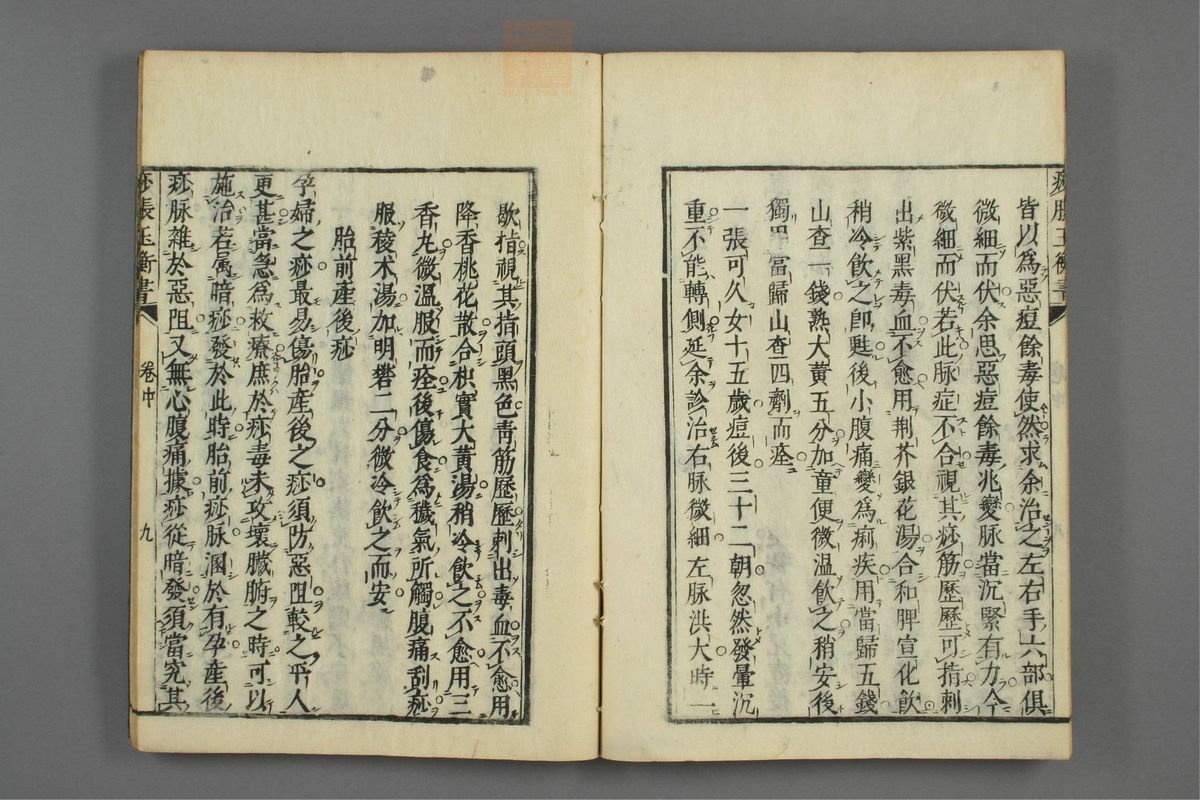 痧脹玉衡書
皆以爲惡痘餘毒使然求余治之左右手六部俱
微細而伏余思惡痘餘毒兆變脉當沉緊有力今
微細而伏若此脉症不合視其痧筋歷歷可指刺
出紫黑毒血不愈用荆芥銀花湯合和脾宣化飲
稍冷飲之卽甦後小腹痛變爲痢疾用當歸五錢
山查一錢熟大黃五分加童便微溫飲之稍安後
獨用當歸山查四劑而痊
一張可久女十五歲痘後三十二朝忽然發暈沉
重不能轉側延余診治右脉微細左脉洪大時一
歇指視其指頭黑色青筋歷歷刺出毒血不愈用
降香桃花散合枳實大黃湯稍冷飲之不愈用三
香丸微溫服而痊後傷食爲穢氣所觸腹痛刮痧
服稜朮湯加明礬二分微冷飲之而安
胎前產後痧
孕婦之痧最易傷胎產後之痧須防惡阻較之平人
更甚當急爲救療庶於痧毒未攻壞臟腑之時可以
施治若屬暗痧發於此時胎前痧脉溷於有孕產後
痧脉雜於惡阻又無心腹痛據痧從暗發須當究其
痧脹玉衡書
卷中
九